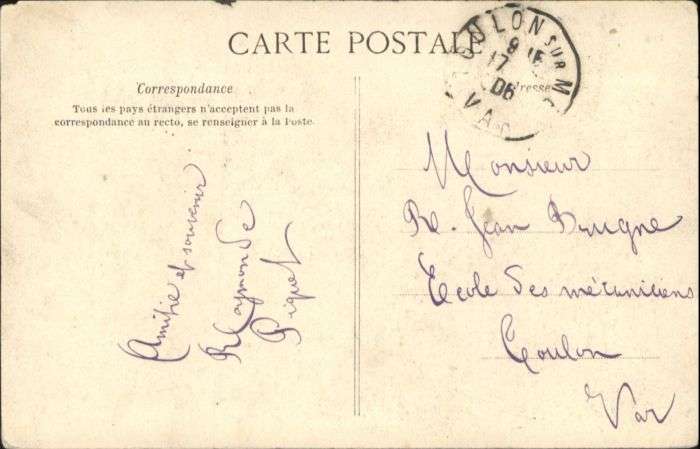 CARTE POSTALE
TOULON SUR MER
9 15
17
06
VAR
Correspondance
Tous les pays étrangers n'acceptent pas la
correspondance au recto, se renseigner à la Poste.
Adresse
Amitié et souvenir
Raymonde
Piquet
Monsieur
R. Jean Brugne
Ecole des mécaniciens
Toulon
Var